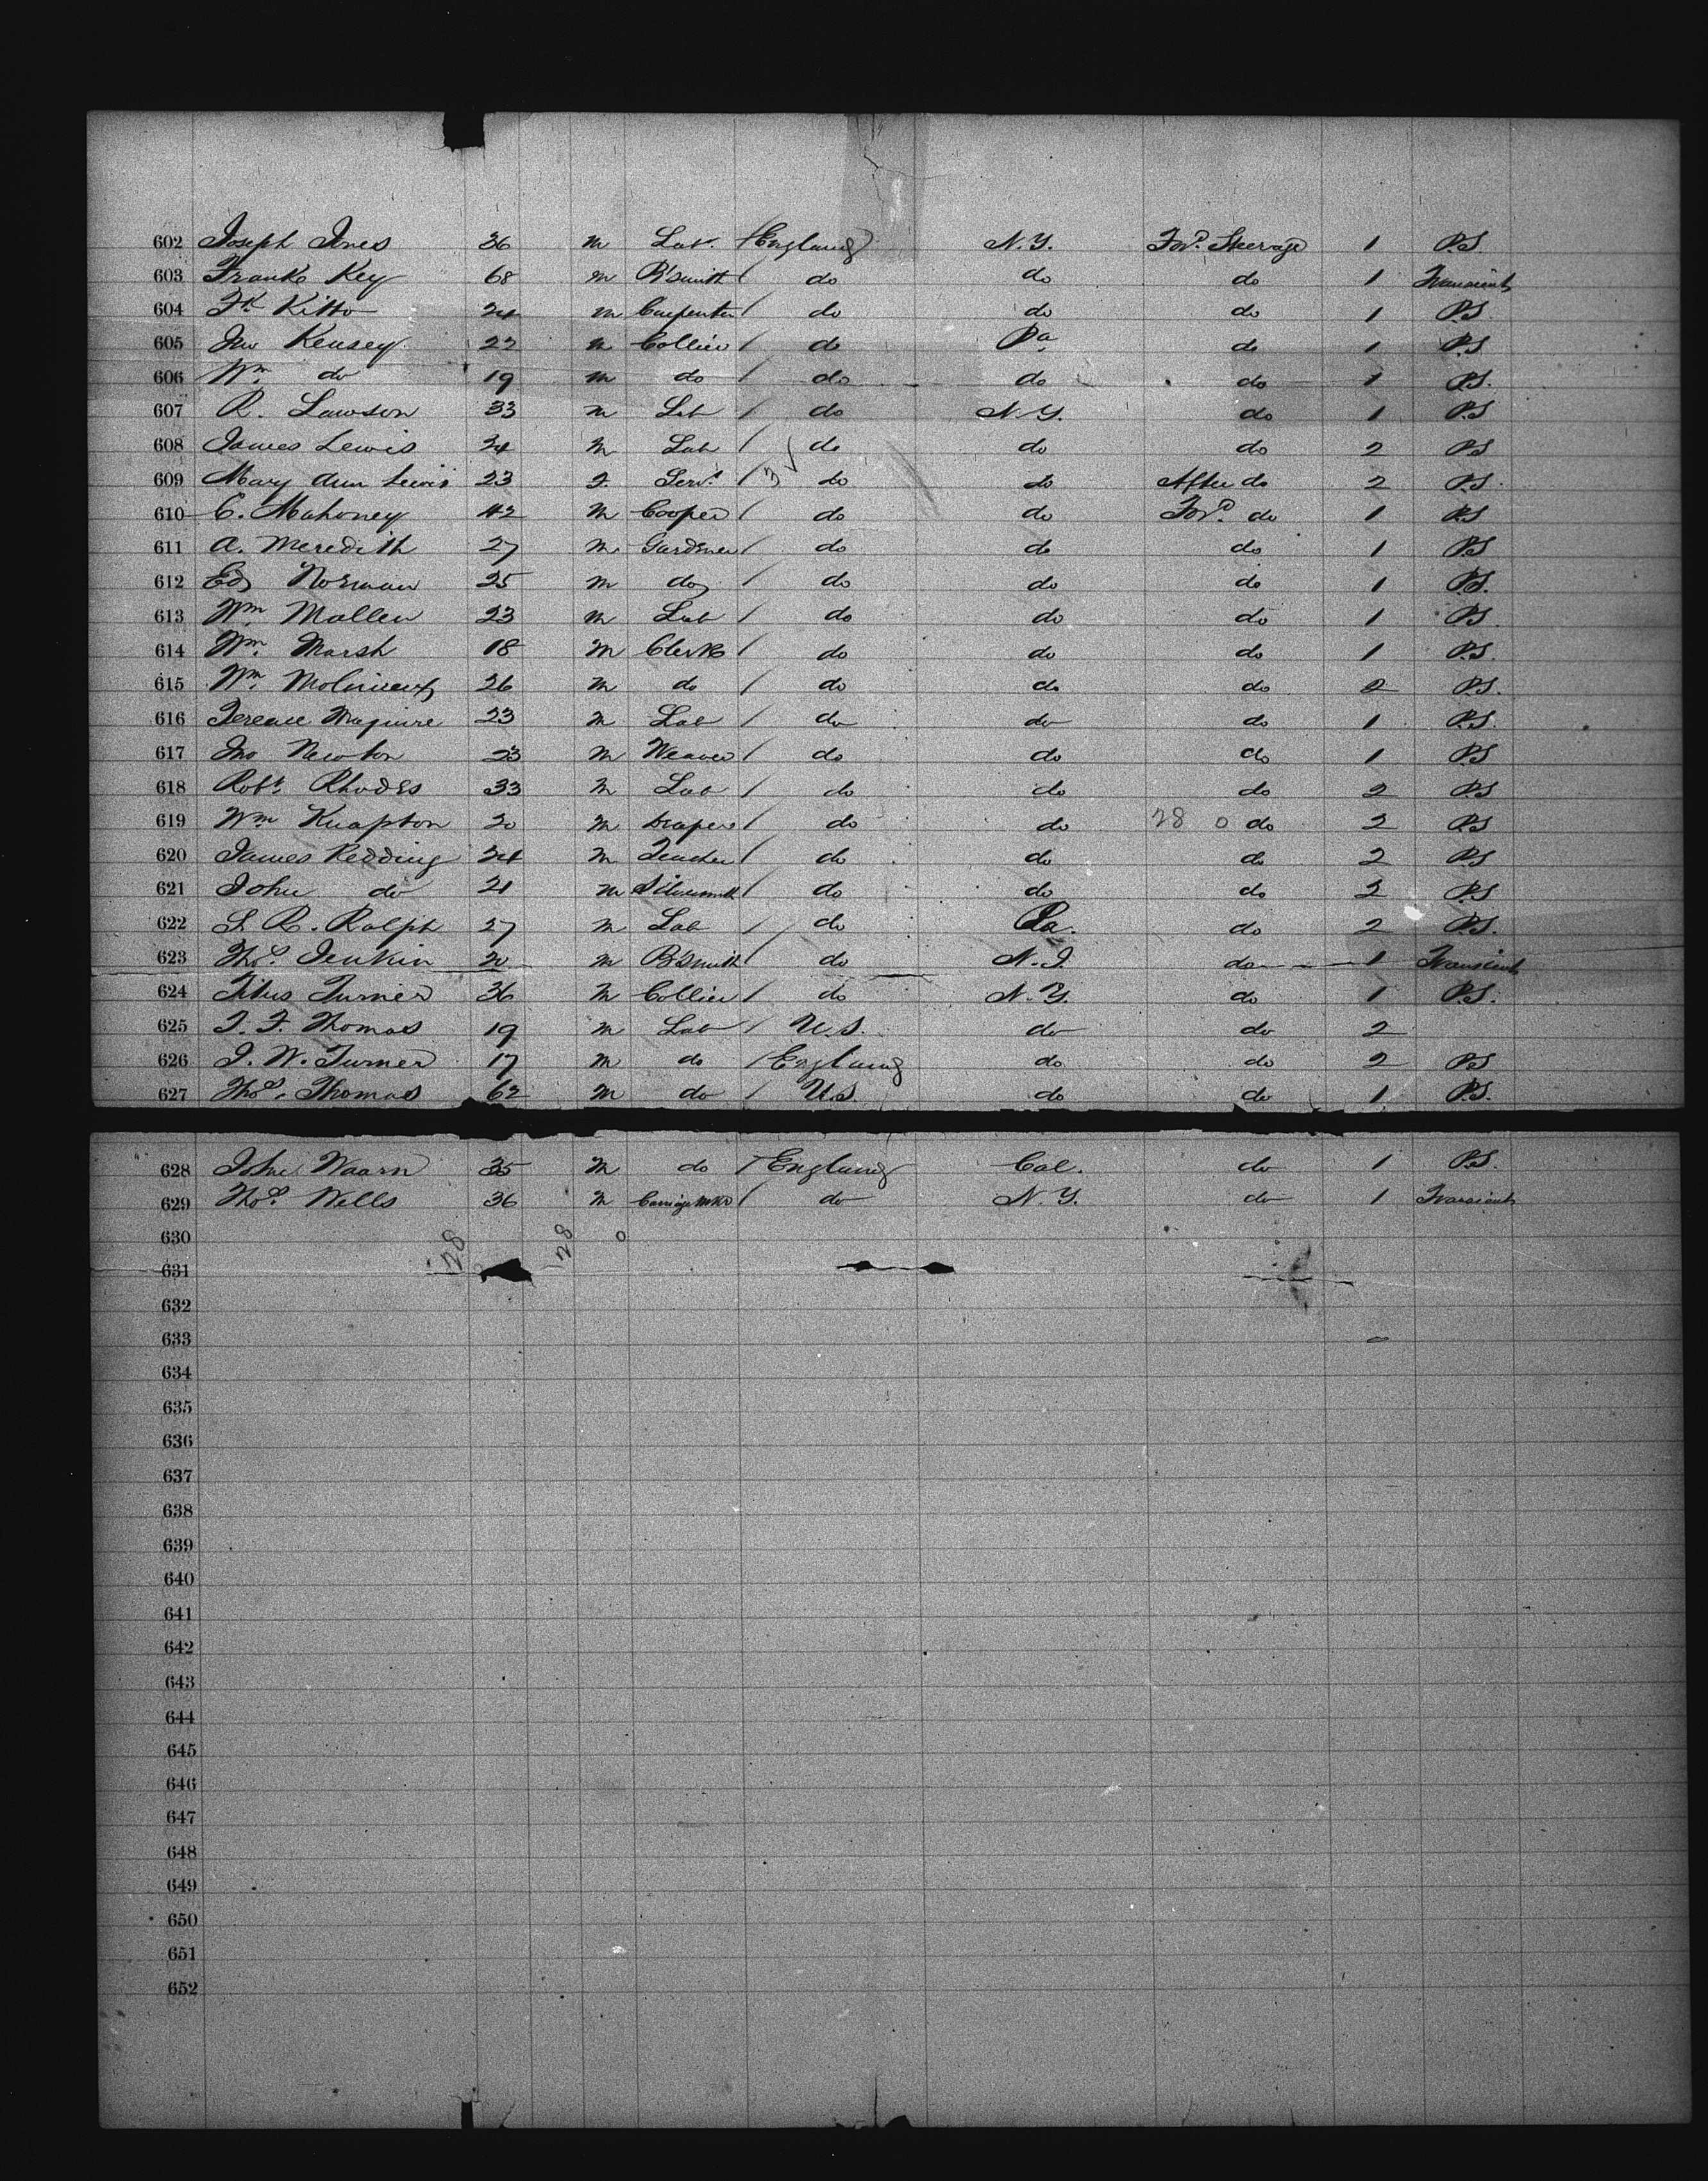 602 Joseph Jones 36 m Lab. / England N.Y. For'd Steerage 1 P.S.
603 Frank Key 68 m B'smith / do do do 1 Transient
604 Fk Kitto 24 m Carpenter / do do do 1 P.S.
605 Jno Kensey 22 m Collier / do Pa. do 1 P.S
606 Wm. do 19 m do / do do do 1 P.S.
607 R. Lawson 33 m Lab / do N.Y. do 1 P.S
608 James Lewis 24 m Lab / do do do 2 P.S
609 Mary Ann Lewis 23 F. Serv.t / 3 ✓ do do After do 2 P.S.
610 C. Mahoney 42 m Cooper / do do For'd do 1 P.S
611 A. Meredith 27 m. Gardener / do do do 1 P.S
612 Ed Norman 25 m do / do do do 1 P.S.
613 Wm Mallen 23 m Lab / do do do 1 P.S.
614 Wm. Marsh 18 m Clerk / do do do 1 P.S.
615 Wm. Molineux 26 m do / do do do 2 P.S.
616 Terence Maguire 23 m Lab / do do do 1 P.S.
617 Jno Newton 23 m Weaver / do do do 1 P.S
618 Robt. Rhodes 33 m Lab / do do do 2 P.S
619 Wm Knapton 20 m Draper / do do 28 0 do 2 P.S
620 James Redding 24 m Teacher / do do do 2 P.S
621 John do 21 m Silversmith / do do do 2 P.S
622 S. R. Ralph 27 m Lab / do Pa. do 2 P.S.
623 Thos. Jenkin 20 m B'smith / do N.J. do 1 Transient
624 Titus Turner 36 m Collier / do N.Y. do 1 P.S.
625 T. F. Thomas 19 m Lab / U.S. do do 2
626 J. W. Turner 17 m do / England do do 2 P.S
627 Thos. Thomas 62 m do / U.S. do do 1 P.S.
628 John Waarn 35 m do / England Cal. do 1 P.S.
629 Thos. Wells 36 m Carriage Mkr / do N.Y. do 1 Transient
630 28 28 0
631
632
633
634
635
636
637
638
639
640
641
642
643
644
645
646
647
648
649
650
651
652